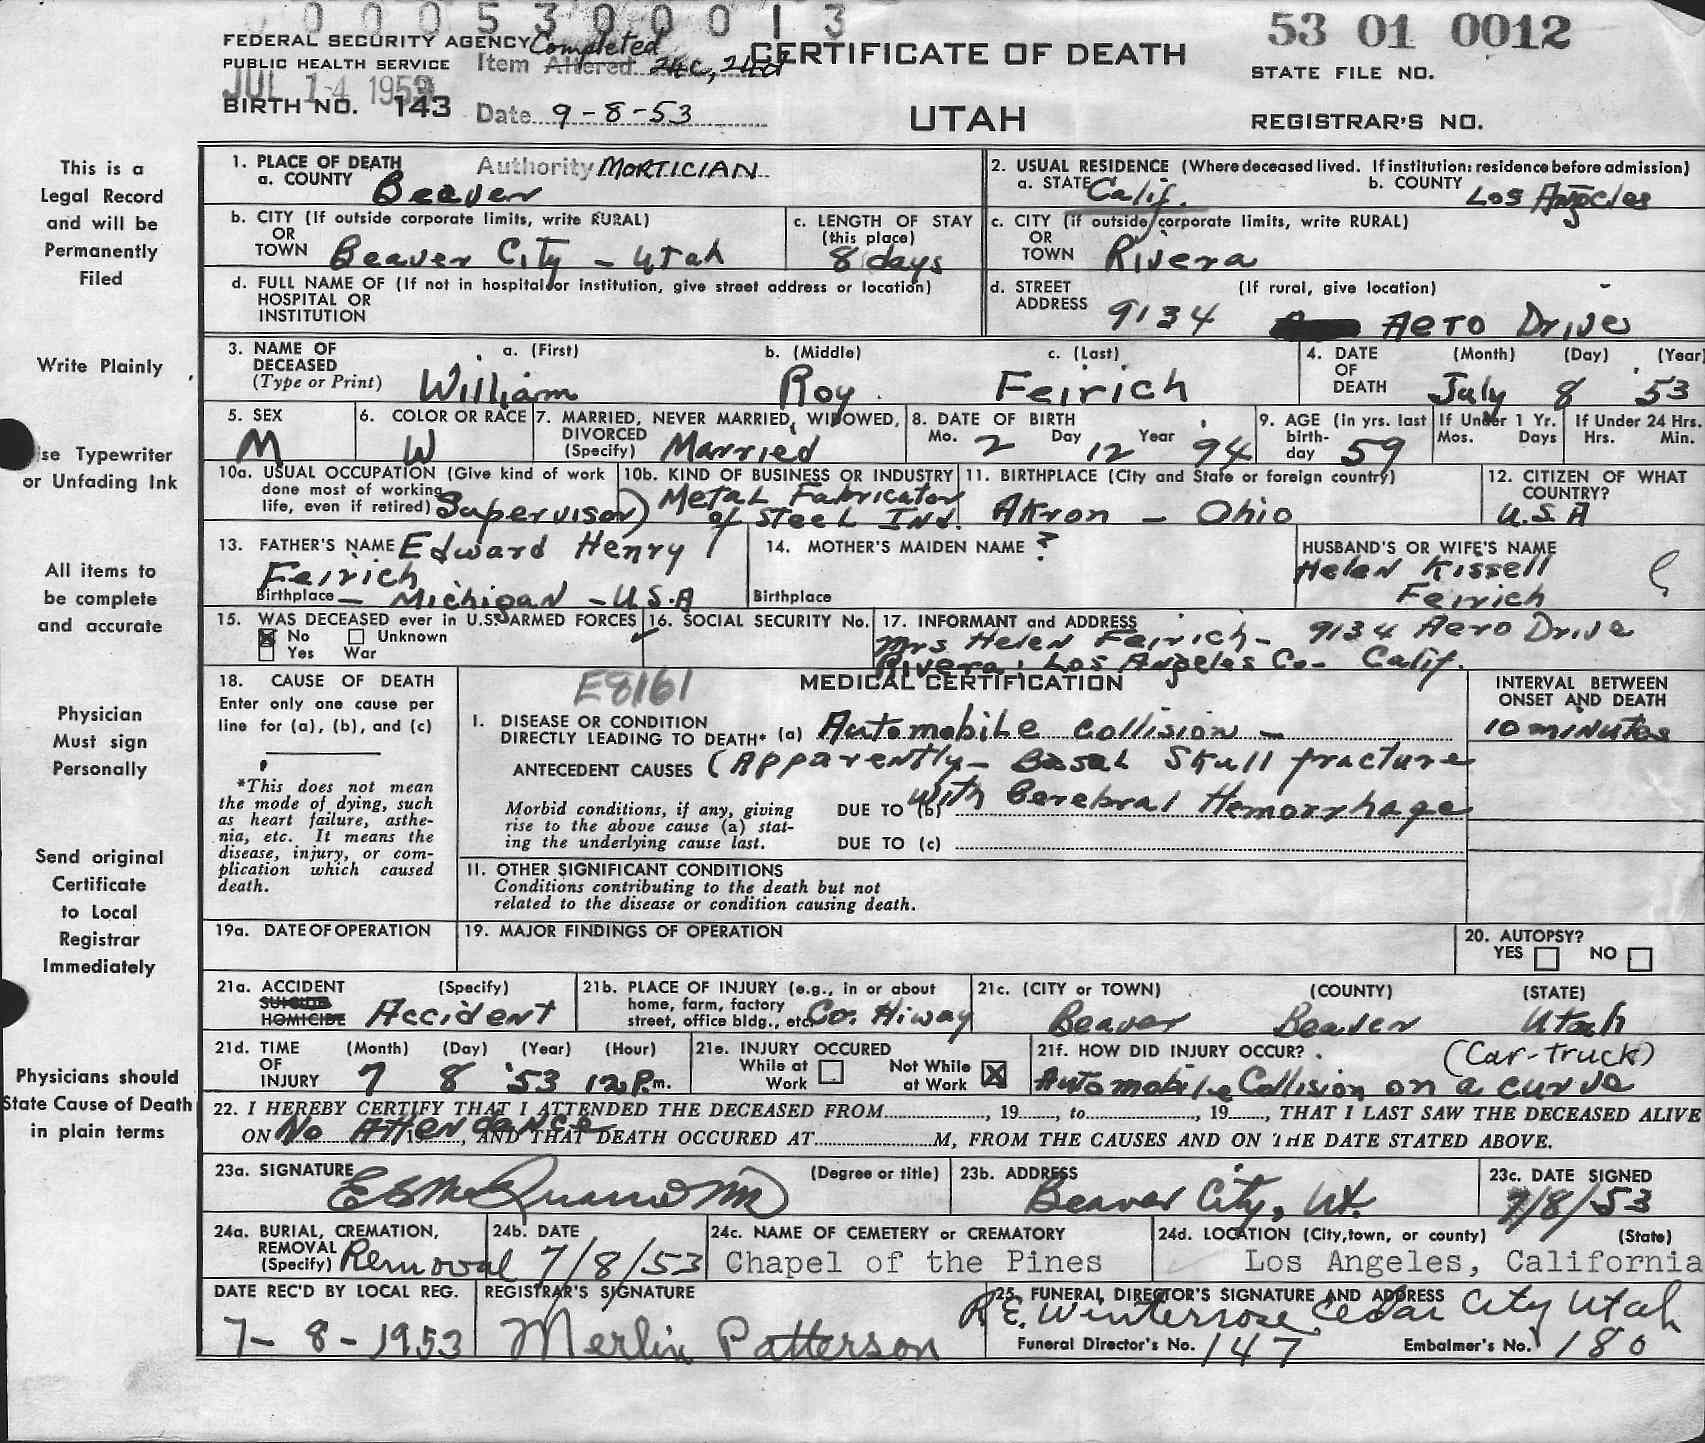 0 0 0 5 3 0 0 0 1 3
53 01 0012
FEDERAL SECURITY AGENCY Completed
CERTIFICATE OF DEATH
PUBLIC HEALTH SERVICE Item Altered 24c, 24d
STATE FILE NO.
JUL 14 1953
BIRTH NO. 143 Date 9-8-53
UTAH
REGISTRAR'S NO.
This is a
Legal Record
and will be
Permanently
Filed
Write Plainly
se Typewriter
or Unfading Ink
All items to
be complete
and accurate
Physician
Must sign
Personally
Send original
Certificate
to Local
Registrar
Immediately
Physicians should
State Cause of Death
in plain terms
1. PLACE OF DEATH Authority MORTICIAN
a. COUNTY Beaver
2. USUAL RESIDENCE (Where deceased lived. If institution: residence before admission)
a. STATE Calif. b. COUNTY Los Angeles
b. CITY (If outside corporate limits, write RURAL)
OR
TOWN Beaver City - Utah
c. LENGTH OF STAY
(this place)
8 days
c. CITY (if outside corporate limits, write RURAL)
OR
TOWN Rivera
d. FULL NAME OF (If not in hospital or institution, give street address or location)
HOSPITAL OR
INSTITUTION
d. STREET (If rural, give location)
ADDRESS 9134 Aero Drive
3. NAME OF a. (First) b. (Middle) c. (Last)
DECEASED
(Type or Print) William Roy Feirich
4. DATE (Month) (Day) (Year)
OF
DEATH July 8 '53
5. SEX
M
6. COLOR OR RACE
W
7. MARRIED, NEVER MARRIED, WIDOWED,
DIVORCED
(Specify) Married
8. DATE OF BIRTH
Mo. 2 Day 12 Year 94
9. AGE (in yrs. last
birth-
day 59
If Under 1 Yr.
Mos. Days
If Under 24 Hrs.
Hrs. Min.
10a. USUAL OCCUPATION (Give kind of work
done most of working
life, even if retired) Supervisor
10b. KIND OF BUSINESS OR INDUSTRY
Metal Fabricator
of Steel Ind.
11. BIRTHPLACE (City and State or foreign country)
Akron - Ohio
12. CITIZEN OF WHAT
COUNTRY?
U.S.A
13. FATHER'S NAME Edward Henry
Feirich
Birthplace - Michigan - U.S.A
14. MOTHER'S MAIDEN NAME ?
Birthplace
HUSBAND'S OR WIFE'S NAME
Helen Kissell
Feirich
15. WAS DECEASED ever in U.S. ARMED FORCES
No Unknown
Yes War
16. SOCIAL SECURITY No.
17. INFORMANT and ADDRESS
Mrs Helen Feirich - 9134 Aero Drive
Rivera, Los Angeles Co- Calif.
18. CAUSE OF DEATH
Enter only one cause per
line for (a), (b), and (c)
*This does not mean
the mode of dying, such
as heart failure, asthe-
nia, etc. It means the
disease, injury, or com-
plication which caused
death.
E8161 MEDICAL CERTIFICATION
I. DISEASE OR CONDITION
DIRECTLY LEADING TO DEATH* (a) Automobile collision -
ANTECEDENT CAUSES (Apparently - Basal Skull fracture
Morbid conditions, if any, giving
rise to the above cause (a) stat-
ing the underlying cause last.
DUE TO (b) with Cerebral Hemorrhage
DUE TO (c)
INTERVAL BETWEEN
ONSET AND DEATH
10 minutes
II. OTHER SIGNIFICANT CONDITIONS
Conditions contributing to the death but not
related to the disease or condition causing death.
19a. DATE OF OPERATION
19. MAJOR FINDINGS OF OPERATION
20. AUTOPSY?
YES NO
21a. ACCIDENT (Specify)
SUICIDE
HOMICIDE Accident
21b. PLACE OF INJURY (e.g., in or about
home, farm, factory
street, office bldg., etc. Co. Hiway
21c. (CITY or TOWN) (COUNTY) (STATE)
Beaver Beaver Utah
21d. TIME (Month) (Day) (Year) (Hour)
OF
INJURY 7 8 '53 12 P.m.
21e. INJURY OCCURED
While at Work Not While at Work
21f. HOW DID INJURY OCCUR? (Car-truck)
Automobile Collision on a curve
22. I HEREBY CERTIFY THAT I ATTENDED THE DECEASED FROM, 19, to, 19, THAT I LAST SAW THE DECEASED ALIVE
ON No Attendance, AND THAT DEATH OCCURED AT M, FROM THE CAUSES AND ON THE DATE STATED ABOVE.
23a. SIGNATURE (Degree or title)
23b. ADDRESS
Beaver City, Ut.
23c. DATE SIGNED
7/8/53
24a. BURIAL, CREMATION,
REMOVAL
(Specify) Removal
24b. DATE
7/8/53
24c. NAME OF CEMETERY OR CREMATORY
Chapel of the Pines
24d. LOCATION (City, town, or county) (State)
Los Angeles, California
DATE REC'D BY LOCAL REG.
7-8-1953
REGISTRAR'S SIGNATURE
Merlin Patterson
25. FUNERAL DIRECTOR'S SIGNATURE AND ADDRESS
R E. Winterrose Cedar City Utah
Funeral Director's No. 147 Embalmer's No. 180